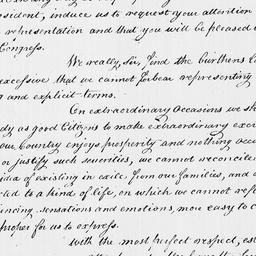 esident, induce us to request your attention
representation and that you will be pleased
Congress.
We really, Sir, find the burthens
excessive that we cannot forbear representing
and explicit terms.
On extraordinary Occasions we sh
dy as good Citizens to make extraordinary exer
our Country enjoys prosperity and nothing occ
or justify such severities, we cannot reconcile
idea of existing in exile from our families, and
cted to a kind of life, on which we cannot refl
encing sensations and emotions, more easy to c
proper for us to express.
With the most perfect respect, est